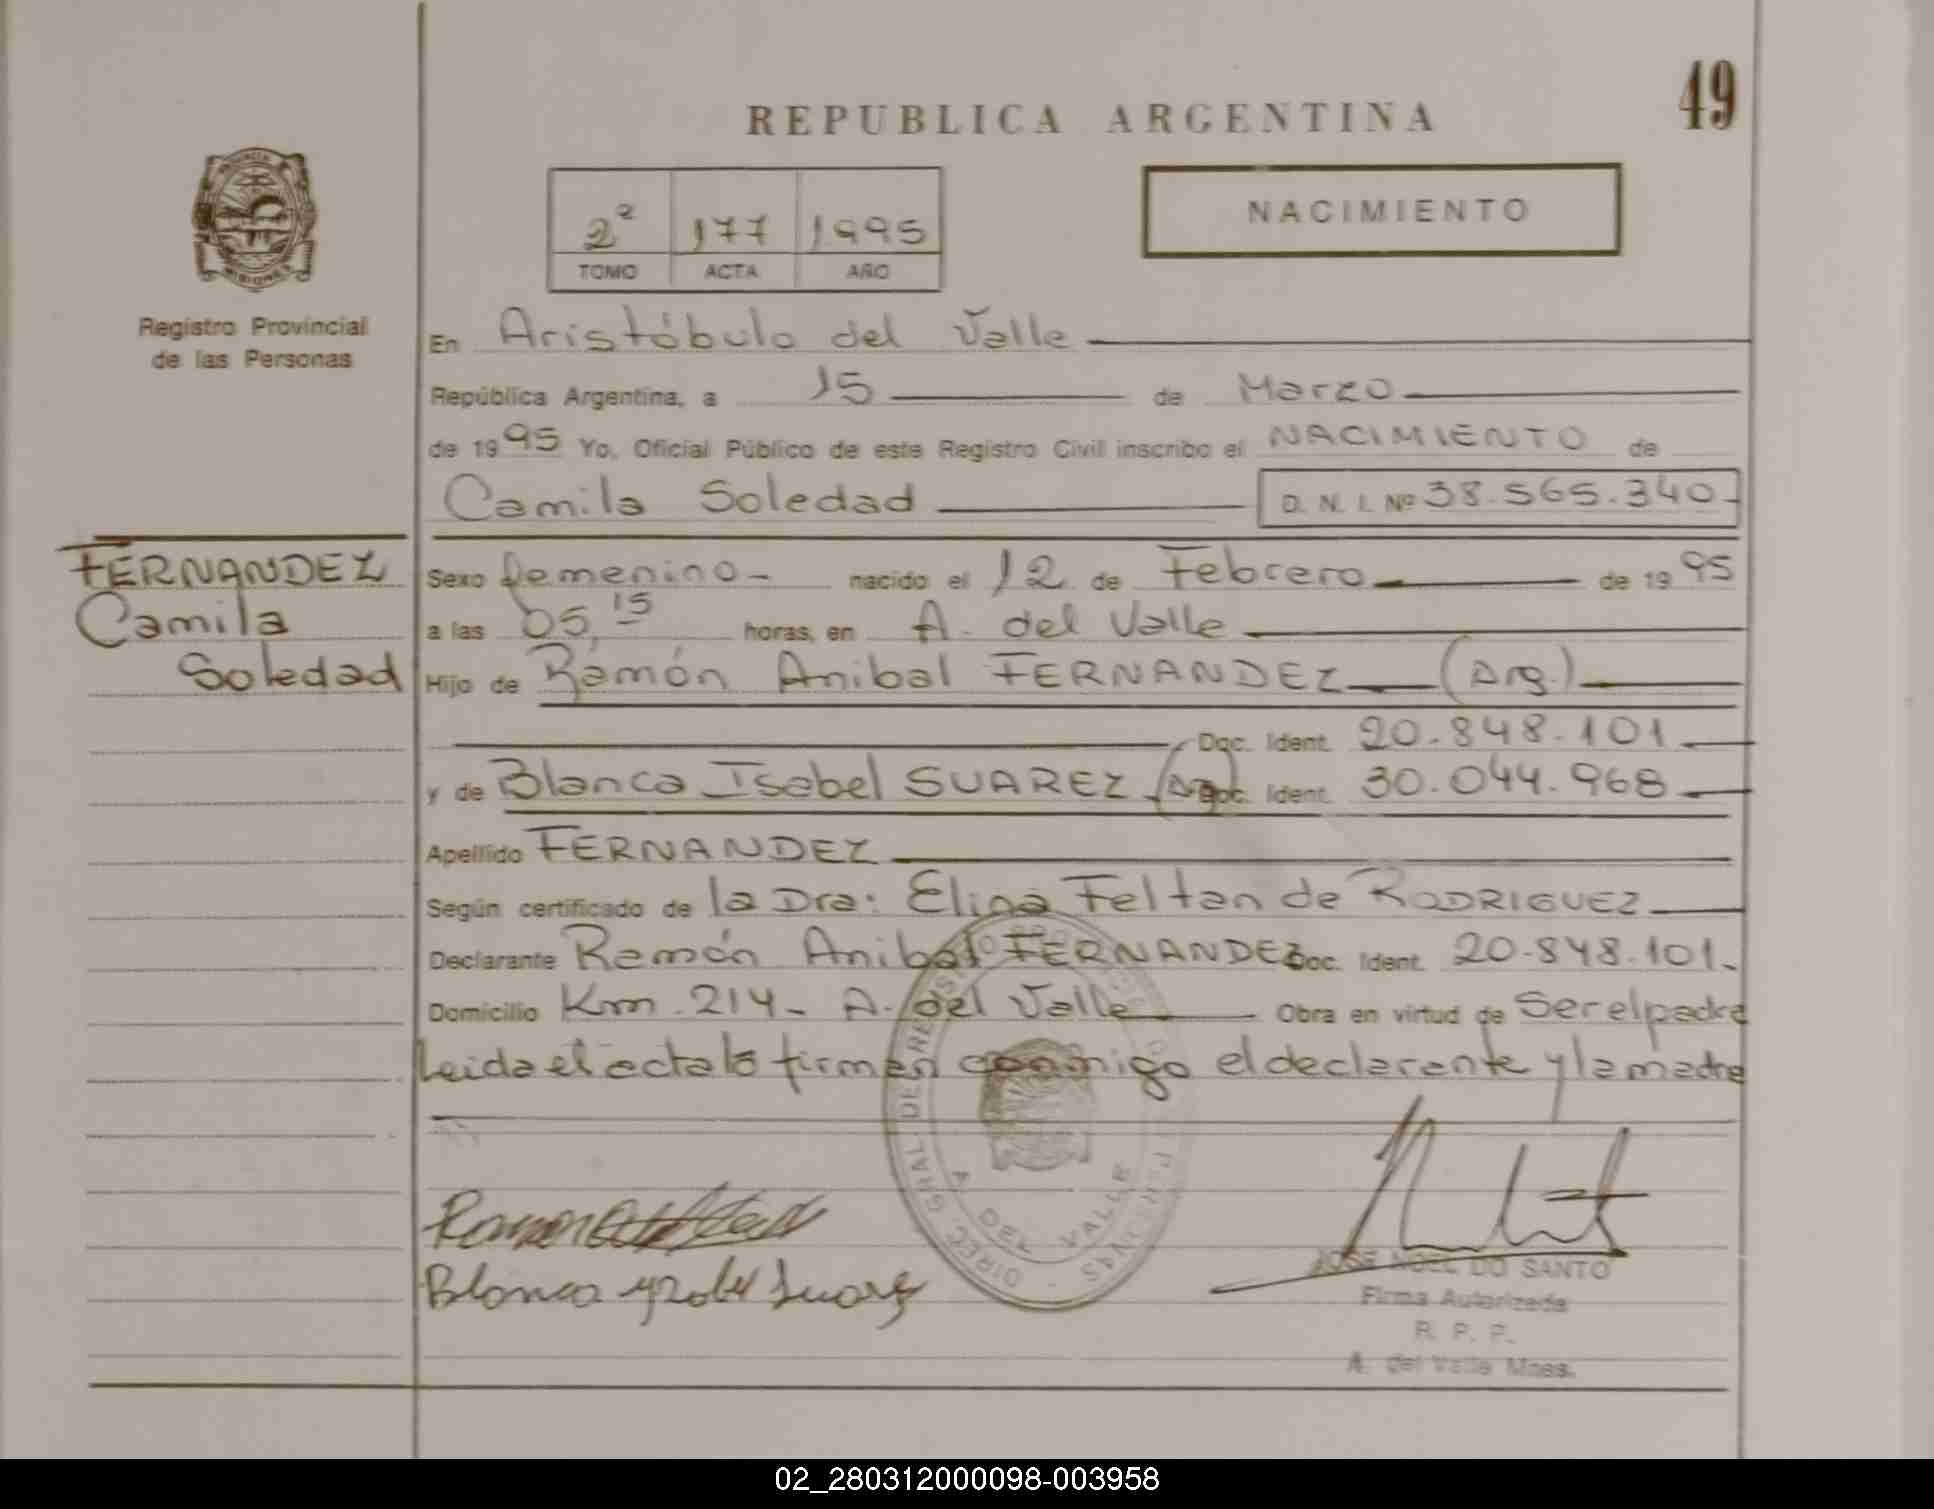 REPUBLICA ARGENTINA
49
2ª 177 1995
TOMO ACTA AÑO
NACIMIENTO
MISIONES
Registro Provincial
de las Personas
En Aristóbulo del Valle
República Argentina, a 15 de Marzo
de 1995 Yo, Oficial Público de este Registro Civil inscribo el NACIMIENTO de
Camila Soledad D. N. I. Nº 38.565.340-
FERNANDEZ
Camila
Soledad
Sexo femenino- nacido el 12 de Febrero de 1995
a las 05,15 horas, en A. del Valle
Hijo de Ramón Anibal FERNANDEZ (Arg.)
Doc. Ident. 20.848.101
y de Blanca Isabel SUAREZ (Arg) Doc. Ident. 30.044.968
Apellido FERNANDEZ
Según certificado de la Dra: Elina Feltan de RODRIGUEZ
Declarante Ramón Anibal FERNANDEZ Doc. Ident. 20.848.101-
Domicilio Km. 214- A. del Valle Obra en virtud de Ser el padre
Leida el acta la firman conmigo el declarante y la madre
DIREC GRAL DE RE
A DEL VALLE
Ramon
Blanca Yzabel Suarez
JOSE NOEL DO SANTO
Firma Autorizada
R. P. P.
A. del Valle Mnes.
02_280312000098-003958